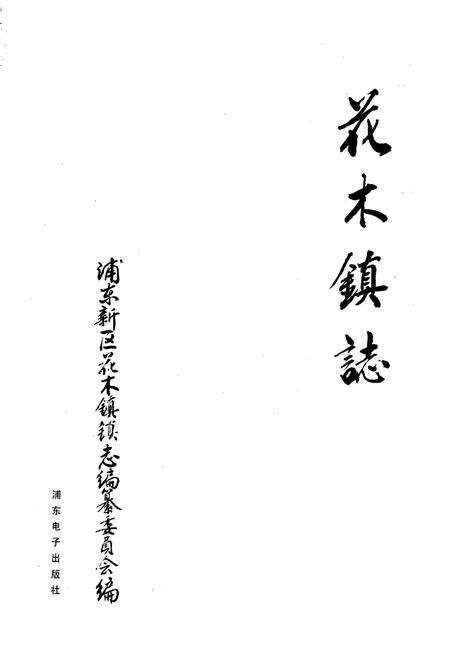 花木鎮誌
浦东新区花木鎮鎮志编纂委员会编
浦东电子出版社